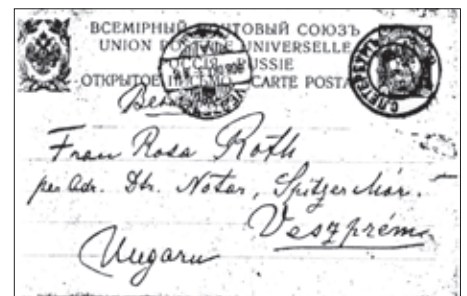 ВСЕМІРНЫЙ ПОЧТОВЫЙ СОЮЗЪ
UNION POSTALE UNIVERSELLE
РОССІЯ RUSSIE
ОТКРЫТОЕ ПИСЬМО CARTE POSTALE
С.ПЕТЕРБУРГЪ
Frau Rosa Roth
per Adr. Notar, Spitzer Mór.
Veszprém
Ungarn